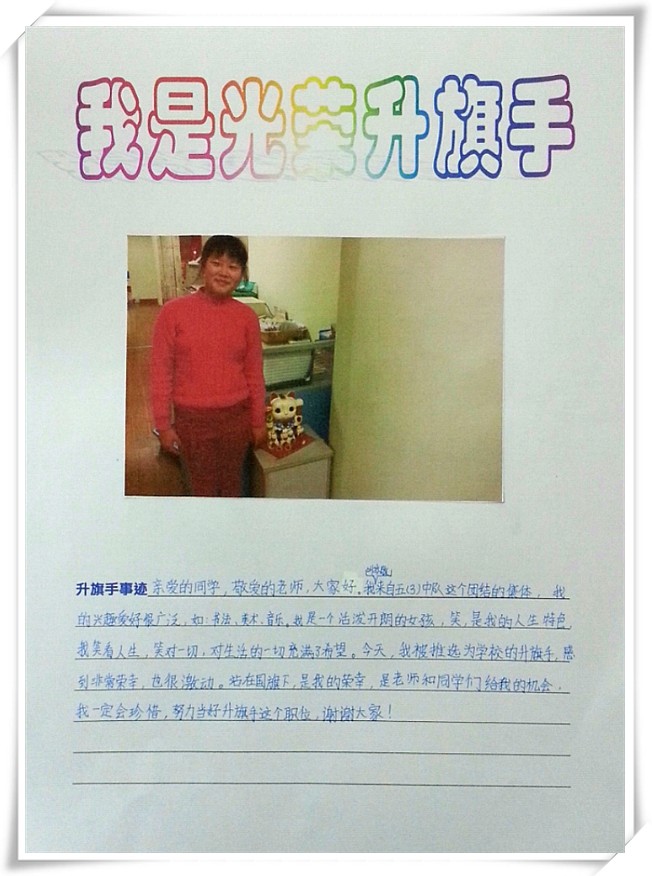 我是光荣升旗手
升旗手事迹 亲爱的同学，敬爱的老师，大家好。我来自五(3)中队这个团结的集体，我
的兴趣爱好很广泛，如：书法、美术、音乐。我是一个活泼开朗的女孩，笑，是我的人生特色，
我笑看人生，笑对一切，对生活的一切充满了希望。今天，我被推选为学校的升旗手，感
到非常荣幸，也很激动。站在国旗下，是我的荣幸，是老师和同学们给我的机会，
我一定会珍惜，努力当好升旗手这个职位，谢谢大家！